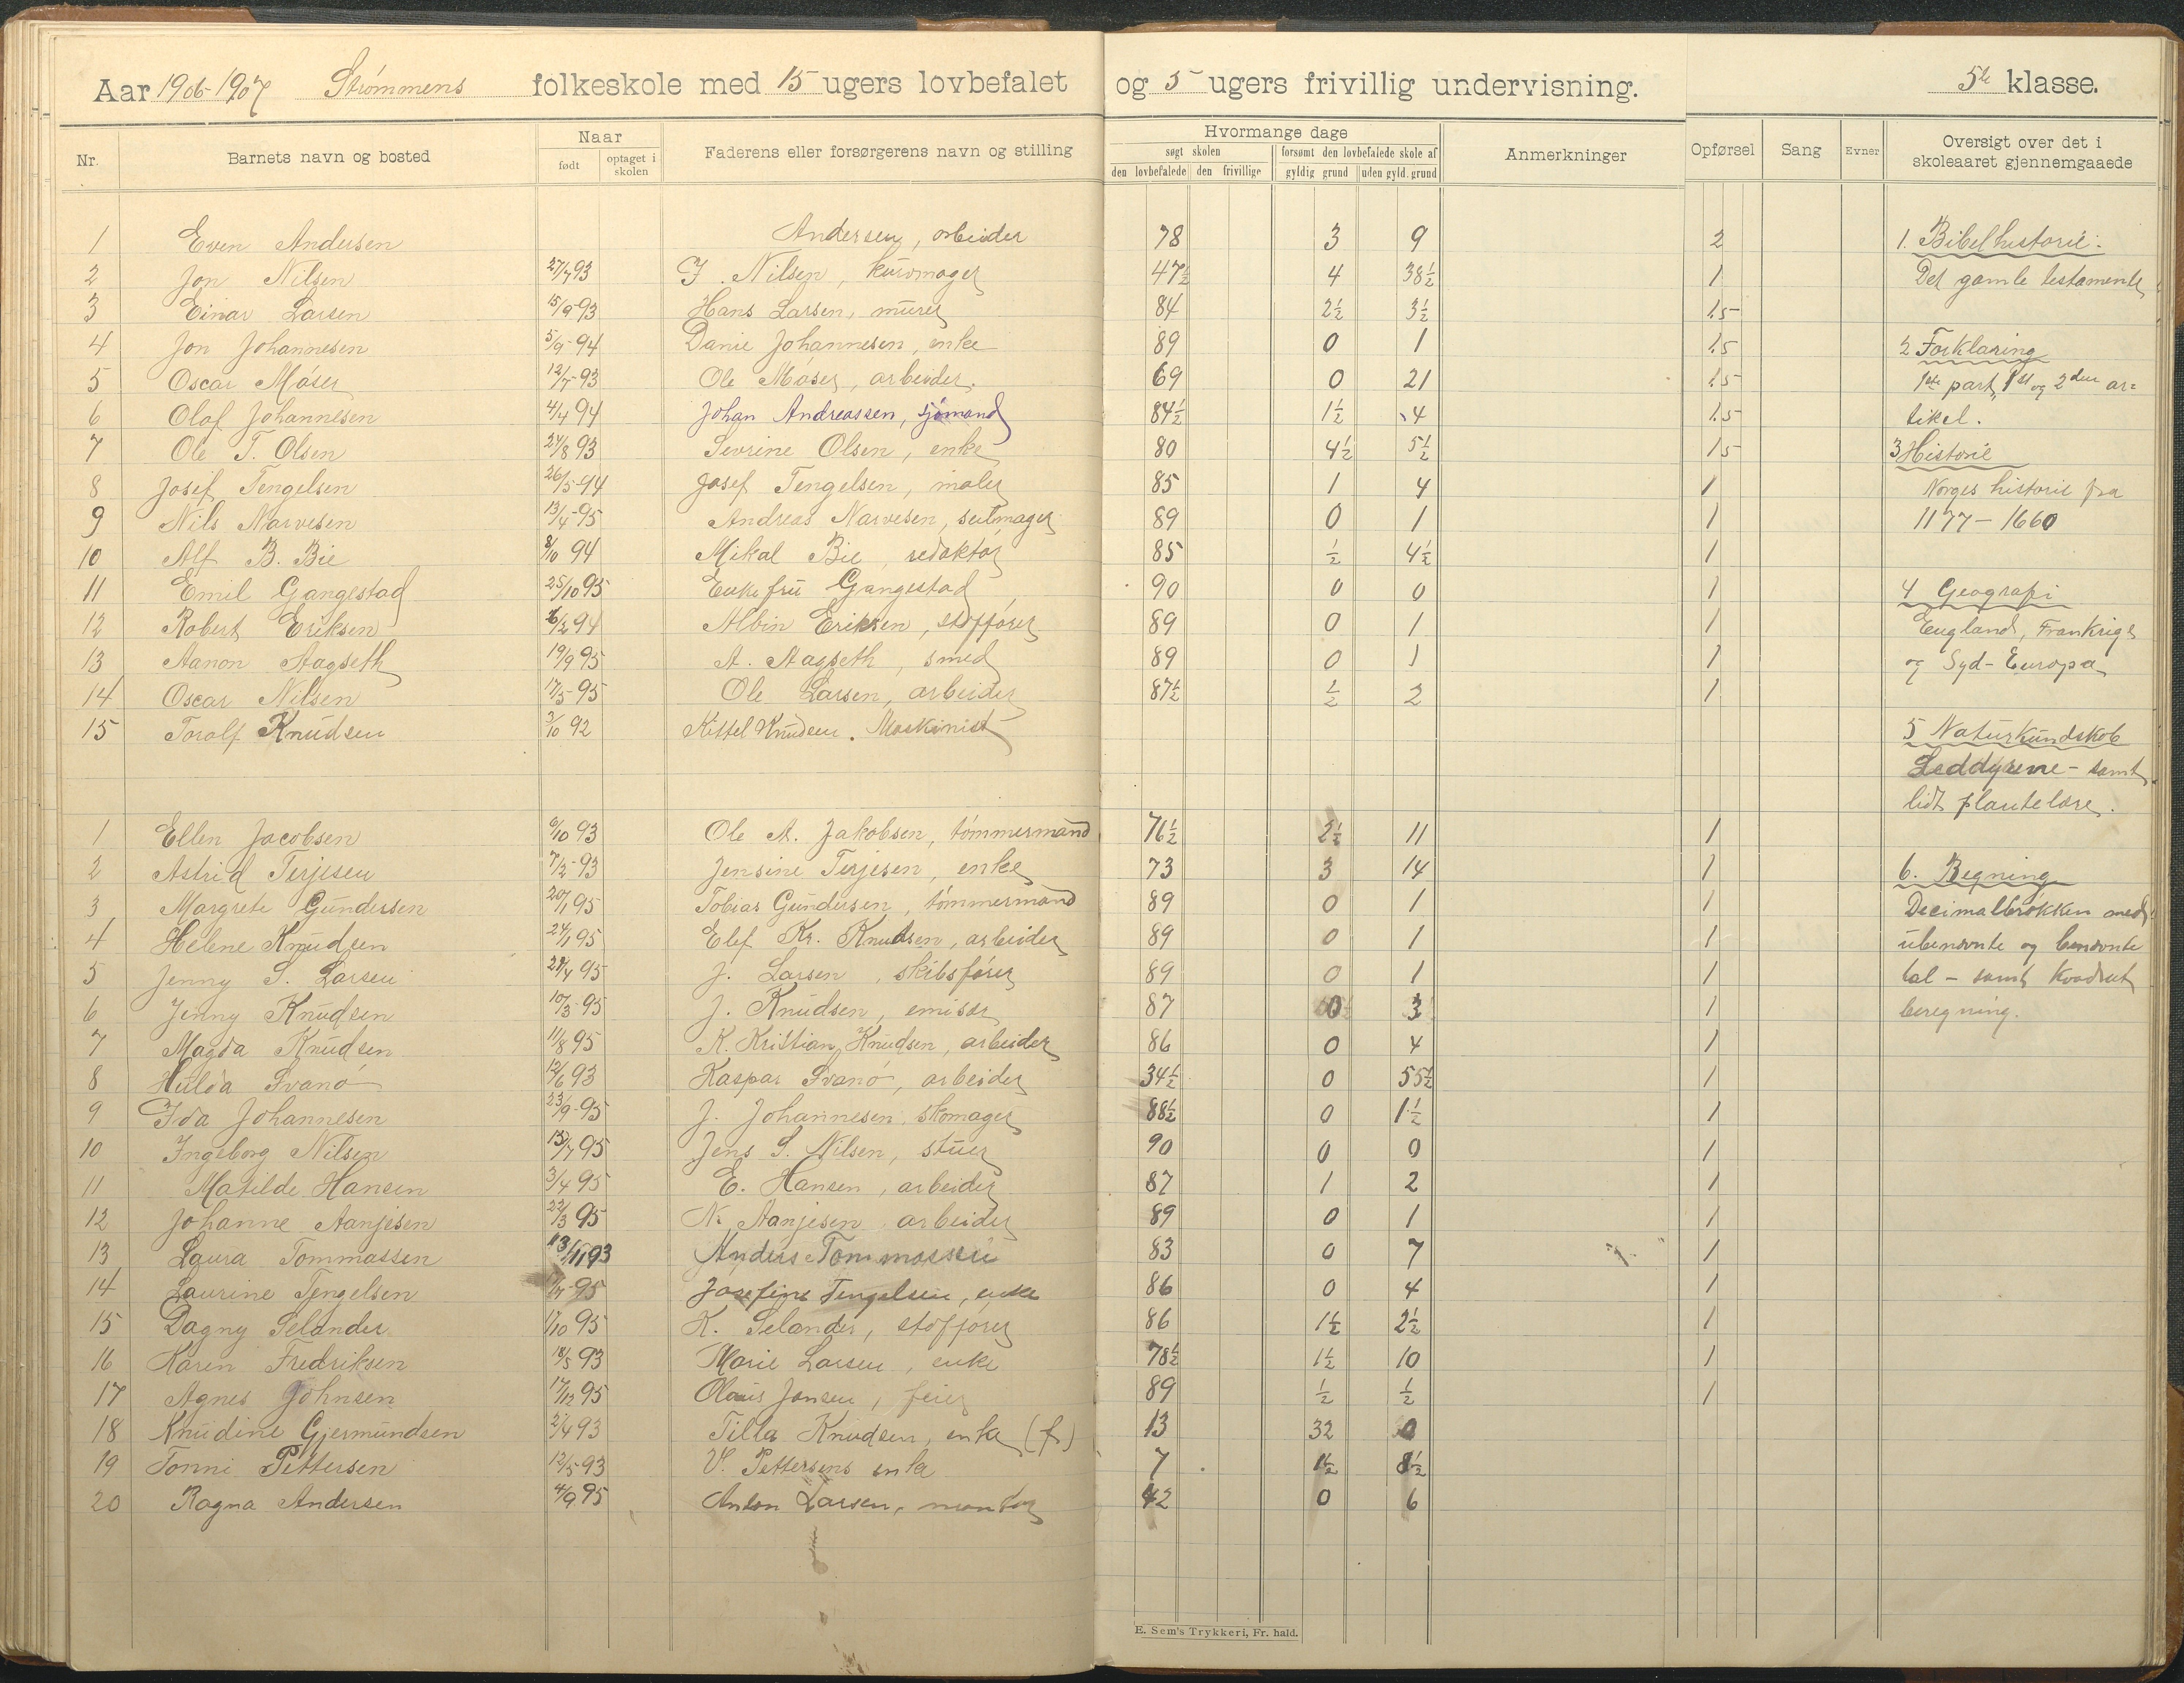 Aar 1906-1907 Strømmens folkeskole med 15 ugers lovbefalet og 5 ugers frivillig undervisning. 5te klasse.
Nr. Barnets navn og bosted Naar født optaget i skolen Faderens eller forsørgerens navn og stilling
Hvormange dage søgt skolen den lovbefalede den frivillige forsømt den lovbefalede skole af gyldig grund uden gyld. grund Anmerkninger Opførsel Sang Evner Oversigt over det i skoleaaret gjennemgaaede
1 Even Andersen Andersen, arbeider 78 3 9 2
2 Jon Nilsen 27/7 93 J. Nilsen, kurvmager 47½ 4 38½ 1
3 Einar Larsen 15/9-93 Hans Larsen, murer 84 2½ 3½ 1.5
4 Jon Johannesen 5/9-94 Danie Johannesen, enke 89 0 1 1.5
5 Oscar Møser 12/7-93 Ole Moser, arbeider. 69 0 21 1.5
6 Olaf Johannesen 4/4 94 Johan Andreassen, sjømand 84½ 1½ 4 1.5
7 Ole T. Olsen 24/8 93 Sevrine Olsen, enke 80 4½ 5½ 1.5
8 Josef Tengelsen 26/5-94 Josef Tengelsen, maler 85 1 4 1
9 Nils Narvesen 13/4-95 Andreas Narvesen, seilmager 89 0 1 1
10 Alf B. Bie 8/10 94 Mikal Bie, redaktør 85 ½ 4½ 1
11 Emil Gangestad 25/10 95 Enkefru Gangestad 90 0 0 1
12 Robert Eriksen 94 Albin Eriksen, skipsfører 89 0 1 1
13 Aanon Aagseth 19/9 95 A. Aagseth, smed 89 0 1 1
14 Oscar Nilsen 17/5-95 Ole Larsen, arbeider 87½ ½ 2 1
15 Toralf Knudsen 3/10 92 Kittel Knudsen. Maskinist
1 Ellen Jacobsen 6/10 93 Ole A. Jakobsen, tømmermand 76½ 2½ 11 1
2 Astrid Terjesen 7/2-93 Jensine Terjesen, enke 73 3 14 1
3 Margrete Gundersen 20/1 95 Tobias Gundersen, tømmermand 89 0 1 1
4 Helene Knudsen 24/1 95 Elef Kr. Knudsen, arbeider 89 0 1 1
5 Jenny S. Larsen 28/4 95 J. Larsen, skibsfører 89 0 1 1
6 Jenny Knudsen 10/3-95 J. Knudsen, emisær 87 0 3 1
7 Magda Knudsen 11/8 95 K. Kristian Knudsen, arbeider 86 0 4 1
8 Hulda Svanø 12/6 93 Kaspar Svanø, arbeider 34½ 0 55½ 1
9 Ida Johannesen 23/9-95 J. Johannesen, skomager 88½ 0 1½ 1
10 Ingeborg Nilsen 13/7 95 Jens S. Nilsen, stuer 90 0 0 1
11 Matilde Hansen 3/4 95 E. Hansen, arbeider 87 1 2 1
12 Johanne Aanjesen 22/3 95 N. Aanjesen, arbeider 89 0 1 1
13 Laura Tommassen 13/11 93 Anders Tommassen 83 0 7 1
14 Laurine Tengelsen 95 Josefine Tengelsen, enke 86 0 4 1
15 Dagny Selander 1/10 95 K. Selander, skipsfører 86 1½ 2½ 1
16 Karen Fredriksen 18/5 93 Marie Larsen, enke 78½ 1½ 10 1
17 Agnes Johnsen 17/12 95 Olaus Jonsen, feier 89 ½ ½ 1
18 Knudine Gjermundsen 2/4 93 Tilla Knudsen, enke (f.) 13 32 0
19 Tonni Pettersen 12/5-93 V. Pettersens enke 7 1½ 8½
20 Ragna Andersen 4/9 95 Anton Larsen, montør 42 0 6
1. Bibelhistorie:
Det gamle testamente
2 Forklaring
1ste part, 1st og 2den ar=
tikel.
3 Historie
Norges historie fra
1177-1660
4 Geografi
England, Frankrige
og Syd-Europa
5 Naturkundskab
Leddyrene - samt
lidt plantelære.
6. Regning
Decimalbrøkken med
ubenævnte og benævnte
tal - samt kvadrat
beregning.
E. Sem's Trykkeri, Fr. hald.